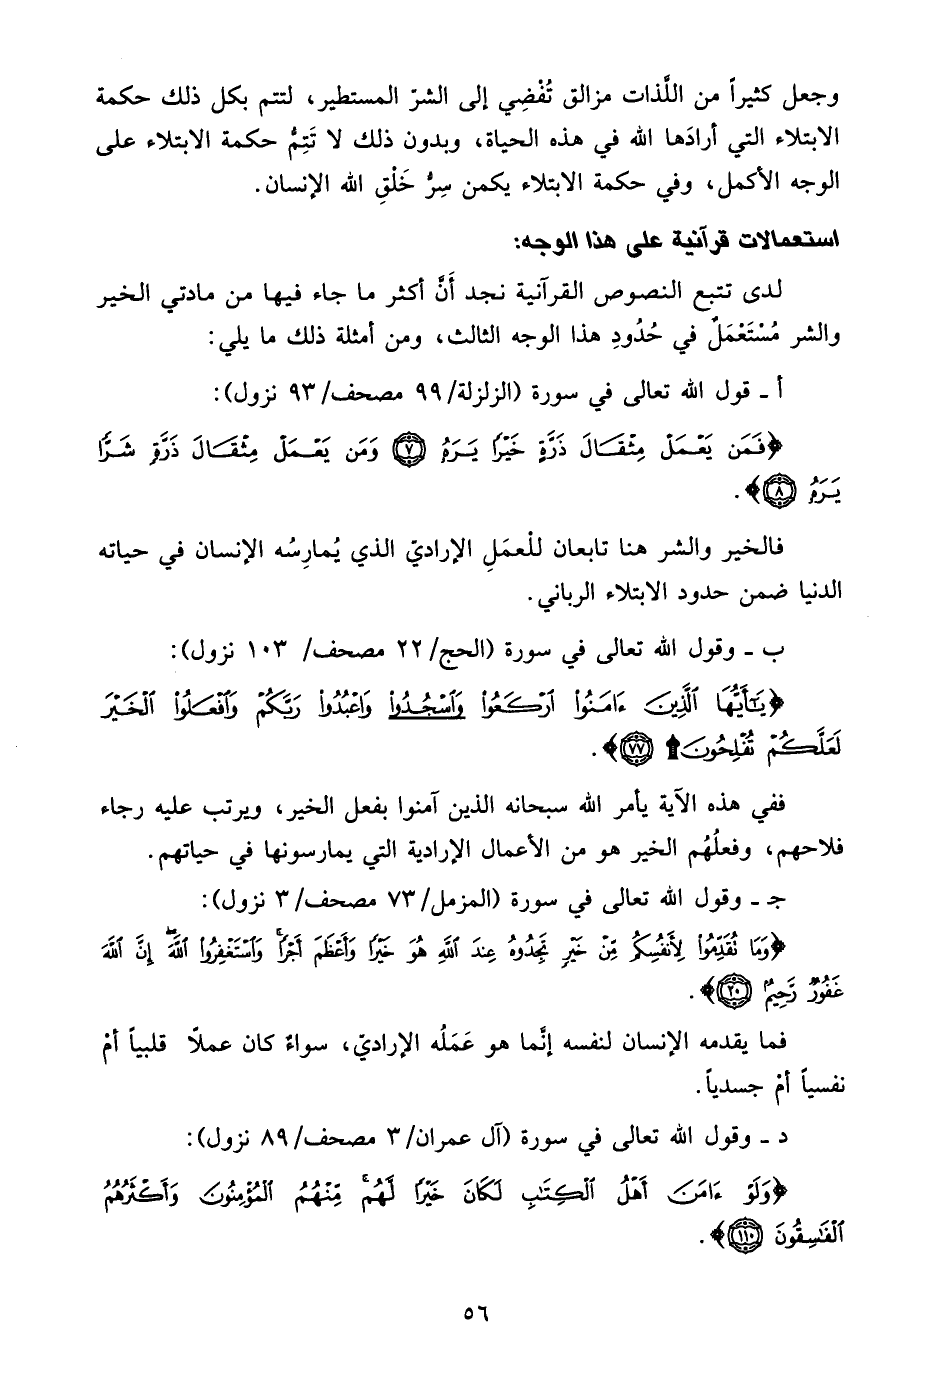 وجعل كثيراً من اللَّذات مزالق تُفْضِي إلى الشرّ المستطير، لتتم بكل ذلك حكمة
الابتلاء التي أرادَها الله في هذه الحياة، وبدون ذلك لا تَتِمُّ حكمة الابتلاء على
الوجه الأكمل، وفي حكمة الابتلاء يكمن سِرُّ خَلْقِ الله الإنسان.
استعمالات قرآنية على هذا الوجه:
لدى تتبع النصوص القرآنية نجد أَنَّ أكثر ما جاء فيها من مادتي الخير
والشر مُسْتَعْمَلٌ في حُدُودِ هذا الوجه الثالث، ومن أمثلة ذلك ما يلي:
أ ـ قول الله تعالى في سورة (الزلزلة/ ٩٩ مصحف/ ٩٣ نزول):
﴿فَمَن يَعْمَلْ مِثْقَالَ ذَرَّةٍ خَيْرًا يَرَهُ ۝٧ وَمَن يَعْمَلْ مِثْقَالَ ذَرَّةٍ شَرًّا
يَرَهُ ۝٨﴾.
فالخير والشر هنا تابعان للْعمَلِ الإراديّ الذي يُمارِسُه الإنسان في حياته
الدنيا ضمن حدود الابتلاء الرباني.
ب ـ وقول الله تعالى في سورة (الحج/ ٢٢ مصحف/ ١٠٣ نزول):
﴿يَٰٓأَيُّهَا ٱلَّذِينَ ءَامَنُوا۟ ٱرْكَعُوا۟ وَٱسْجُدُوا۟ وَٱعْبُدُوا۟ رَبَّكُمْ وَٱفْعَلُوا۟ ٱلْخَيْرَ
لَعَلَّكُمْ تُفْلِحُونَ ۩ ۝٧٧﴾.
ففي هذه الآية يأمر الله سبحانه الذين آمنوا بفعل الخير، ويرتب عليه رجاء
فلاحهم، وفعلُهُم الخير هو من الأعمال الإرادية التي يمارسونها في حياتهم.
جـ ـ وقول الله تعالى في سورة (المزمل/ ٧٣ مصحف/ ٣ نزول):
﴿وَمَا نُقَدِّمُوا۟ لِأَنفُسِكُم مِّنْ خَيْرٍ تَجِدُوهُ عِندَ ٱللَّهِ هُوَ خَيْرًا وَأَعْظَمَ أَجْرًا ۚ وَٱسْتَغْفِرُوا۟ ٱللَّهَ ۖ إِنَّ ٱللَّهَ
غَفُورٌ رَّحِيمٌ ۝٢٠﴾.
فما يقدمه الإنسان لنفسه إنَّما هو عَمَلُه الإراديّ، سواءٌ كان عملاً قلبياً أمْ
نفسياً أمْ جسدياً.
د ـ وقول الله تعالى في سورة (آل عمران/ ٣ مصحف/ ٨٩ نزول):
﴿وَلَوْ ءَامَنَ أَهْلُ ٱلْكِتَٰبِ لَكَانَ خَيْرًا لَّهُم ۚ مِّنْهُمُ ٱلْمُؤْمِنُونَ وَأَكْثَرُهُمُ
ٱلْفَٰسِقُونَ ۝١١٠﴾.
٥٦